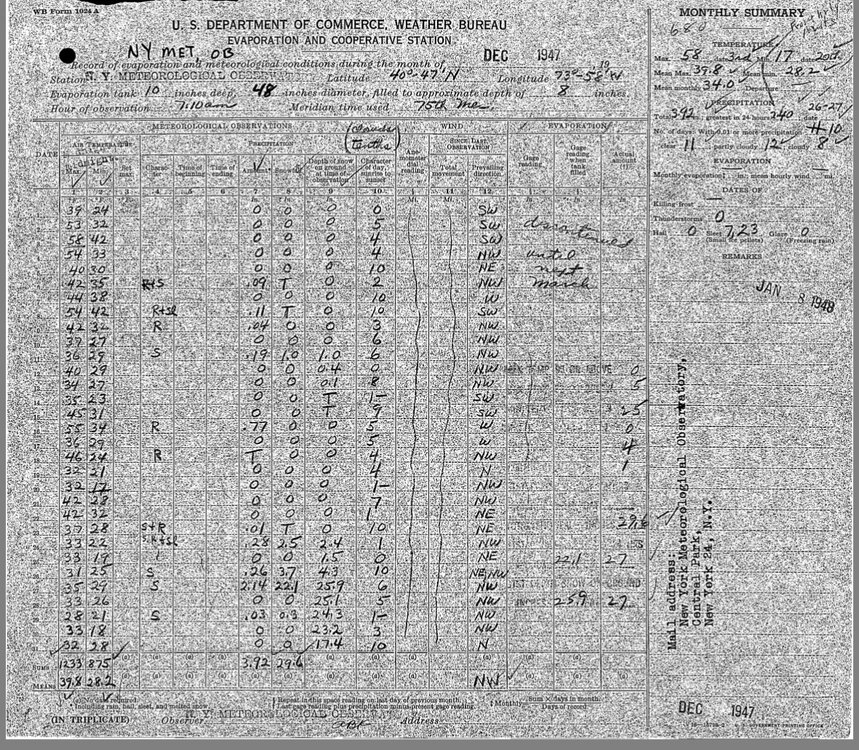 WB Form 1024 A
U. S. DEPARTMENT OF COMMERCE, WEATHER BUREAU
EVAPORATION AND COOPERATIVE STATION
NY MET. OB
DEC 1947
Record of evaporation and meteorological conditions during the month of , 19
Station N. Y. METEOROLOGICAL OBSERVAT Latitude 40°-47' N Longitude 73°-58' W
Evaporation tank 10 inches deep, 48 inches diameter, filled to approximate depth of 8 inches.
Hour of observation 7:10am Meridian time used 75th Me.
METEOROLOGICAL OBSERVATIONS (clouds tenths) WIND EVAPORATION
DATE AIR TEMPERATURE PRECIPITATION SINCE LAST OBSERVATION
Max. Min. Set max. Charac- Time of beginning Time of ending Amount Snowfall Depth of snow on ground at time of observation Character of day, sunrise to sunset Ane-mometer dial reading Total movement Prevailing direction Gage reading Gage reading when tank filled Actual amount
39 24 0 0 0 0 SW
53 32 0 0 0 5 SW discontinued
58 42 0 0 0 4 SW
54 33 0 0 0 4 NW until
40 30 0 0 0 10 NE next
42 35 R+S .09 T 0 2 NW march
44 38 0 0 0 10 W
54 42 R+Sl .11 T 0 10 SW
42 32 R .04 0 0 3 NW
37 27 0 0 0 6 NW
36 29 S .19 1.0 1.0 6 NW
40 29 0 0 0.4 0 NW 0
34 27 0 0 0.1 8 NW 5
35 23 0 0 T 1- SW
45 31 0 0 T 9 SW 25
55 34 R .77 0 0 5 W 0
36 29 0 0 0 5 W 4
46 24 R T 0 0 4 NW 1
32 21 0 0 0 4 N
32 17 0 0 0 1- NW
42 28 0 0 0 7 NW
42 32 0 0 0 NE
37 28 S+R .01 T 0 10 NE 29.6
33 22 .28 2.5 2.4 1 NW
33 19 0 0 1.5 0 NE 22.1 27
31 25 S .26 3.7 4.3 10 NE/NW
35 29 S 2.14 22.1 25.9 6 NW
33 26 0 0 25.1 5 NW 25.9 27
28 21 S .03 0.3 24.3 1- NW
33 18 0 0 23.2 3 NW
32 28 0 0 17.4 10 N
SUMS 1233 875 3.92 29.6
MEANS 39.8 28.2 NW
(IN TRIPLICATE) Observer N. Y. METEOROLOGICAL OBSERVAT Address
MONTHLY SUMMARY
TEMPERATURE
Max. 58 date 3rd Min. 17 date 20th
Mean Max. 39.8 Mean min. 28.2
Mean monthly 34.0 Departure
PRECIPITATION
26-27
Total 3.92 greatest in 24 hours 2.40 date
No. of days: With 0.01 or more precipitation 10
clear 11 partly cloudy 12 cloudy 8
EVAPORATION
Monthly evaporation in; mean hourly wind mi
DATES OF
Killing frost
Thunderstorms 0
Hail 0 Sleet 7,23 Glaze 0
(Small ice pellets) (Freezing rain)
REMARKS
JAN 8 1948
Mail address:
New York Meteorological Observatory,
Central Park,
New York 24, N.Y.
DEC 1947
U. S. GOVERNMENT PRINTING OFFICE